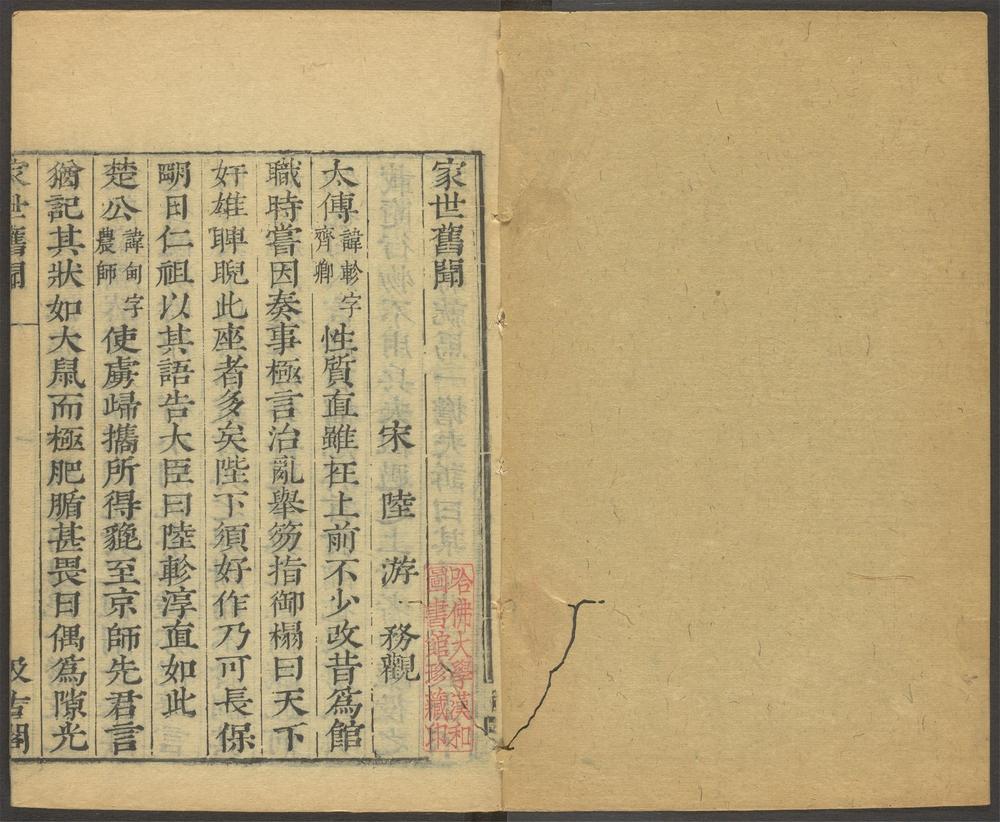 家世舊聞
宋 陸 游 務觀
太傅諱軫字齊卿性質直雖在上前不少改昔爲館
職時嘗因奏事極言治亂舉笏指御榻曰天下
奸雄睥睨此座者多矣陛下須好作乃可長保
明日仁祖以其語告大臣曰陸軫淳直如此
楚公諱佃字農師使虜歸攜所得貔至京師先君言
猶記其狀如大鼠而極肥腯甚畏日偶爲隙光
家世舊聞
汲古閣
哈佛大學漢和
圖書館珍藏印